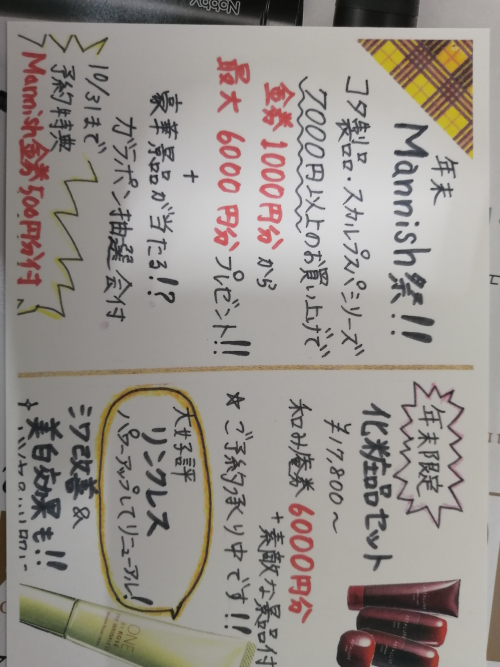 年末
Mannish祭!!
コタ製品・スカルプスパシリーズ
製品
7000円以上のお買い上げで
金券1000円分から
最大6000円分プレゼント!!
+
豪華景品が当たる!?
ガラポン抽選会付
10/31まで
予約特典
Mannish金券500円分付
年末限定
化粧品セット
¥17,800〜
和み庵券6000円分
+素敵な景品付
★ご予約承り中です!!
大好評
リンクレス
パワーアップしてリニューアル!
シワ改善&
美白効果も!!
+
ONE
Nobby